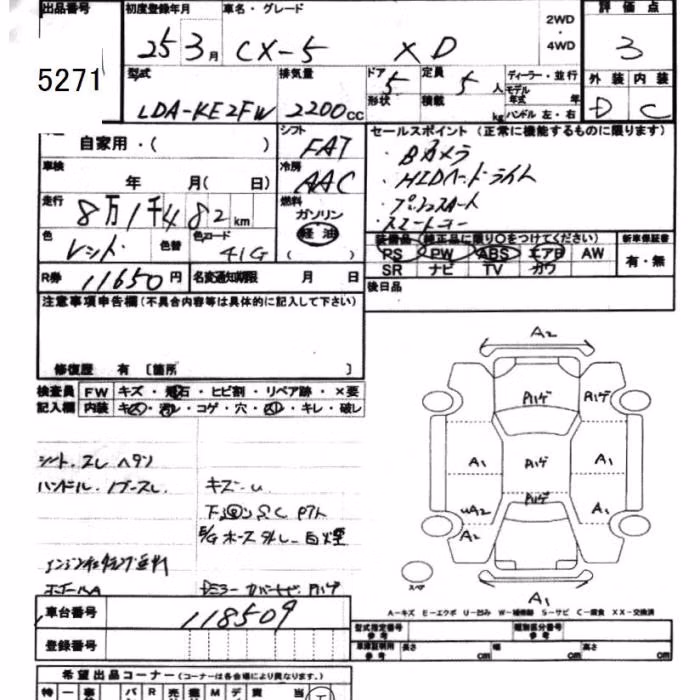 出品番号 初度登録年月 車名・グレード 2WD・4WD 評価点
25 3月 CX-5 XD 3
5271
型式 排気量 ドア 定員 ディーラー・並行
LDA-KE2FW 2200cc 5 5人 モデル年式 年
形状 積載 kg ハンドル 左・右
外装 内装
D C
自家用・( )
シフト FAT
車検 年 月( 日)
冷房 AAC
走行 8万1千482km
燃料 ガソリン 軽油 ( )
色 レッド 色替 色コード 41G
R券 11650円 名変通知期限 月 日
セールスポイント (正常に機能するものに限ります)
・Bカメラ
・HIDヘッドライト
・プッシュスタート
・スマートキー
装備品 (純正品に限り○をつけてください) 新車保証書
PS PW ABS エアB AW 有・無
SR ナビ TV カワ
後日品
注意事項申告欄(不具合内容等は具体的に記入して下さい)
修復歴 有 〔箇所 〕
検査員 FW キズ・飛石・ヒビ割・リペア跡・×要
記入欄 内装 キズ・汚レ・コゲ・穴・スレ・キレ・破レ
シート スレ ヘタリ
ハンドル
キズ・U
E/G ホース外レ 白煙
A2
Pハゲ
Pハゲ
A1
Pハゲ
A1
Pハゲ
UA2
A1
A2
スペア
A1
A-キズ E-エクボ U-凹み W-補修跡 S-サビ C-腐食 XX-交換済
車台番号 118509
登録番号
型式指定番号 参考 類別区分番号 参考
車庫証明用 参考 長さ cm 幅 cm 高さ cm
希望出品コーナー (コーナーは各会場により異なります。)